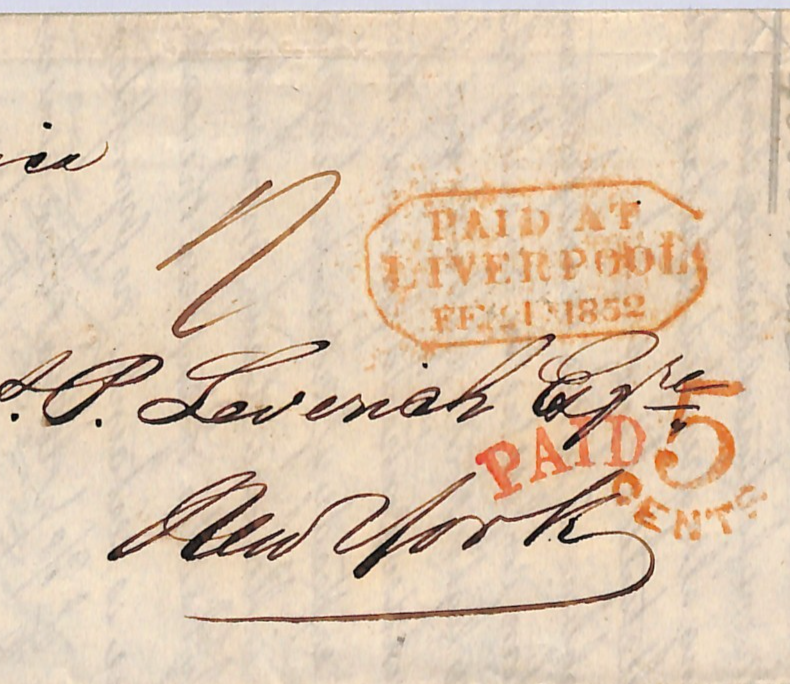 PAID AT
LIVERPOOL
1852
P. Leverich Esqre
PAID 5
CENTS
New York